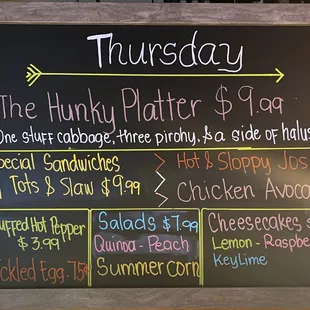 Thursday
The Hunky Platter $9.99
One stuff cabbage, three pirohy, & a side of halus
pecial Sandwiches
Tots & Slaw $9.99
Hot & Sloppy Jos
Chicken Avoca
uffed Hot Pepper
$3.99
ickled Egg .75¢
Salads $7.99
Quinoa - Peach
Summer corn
Cheesecakes
Lemon - Raspbe
Key Lime